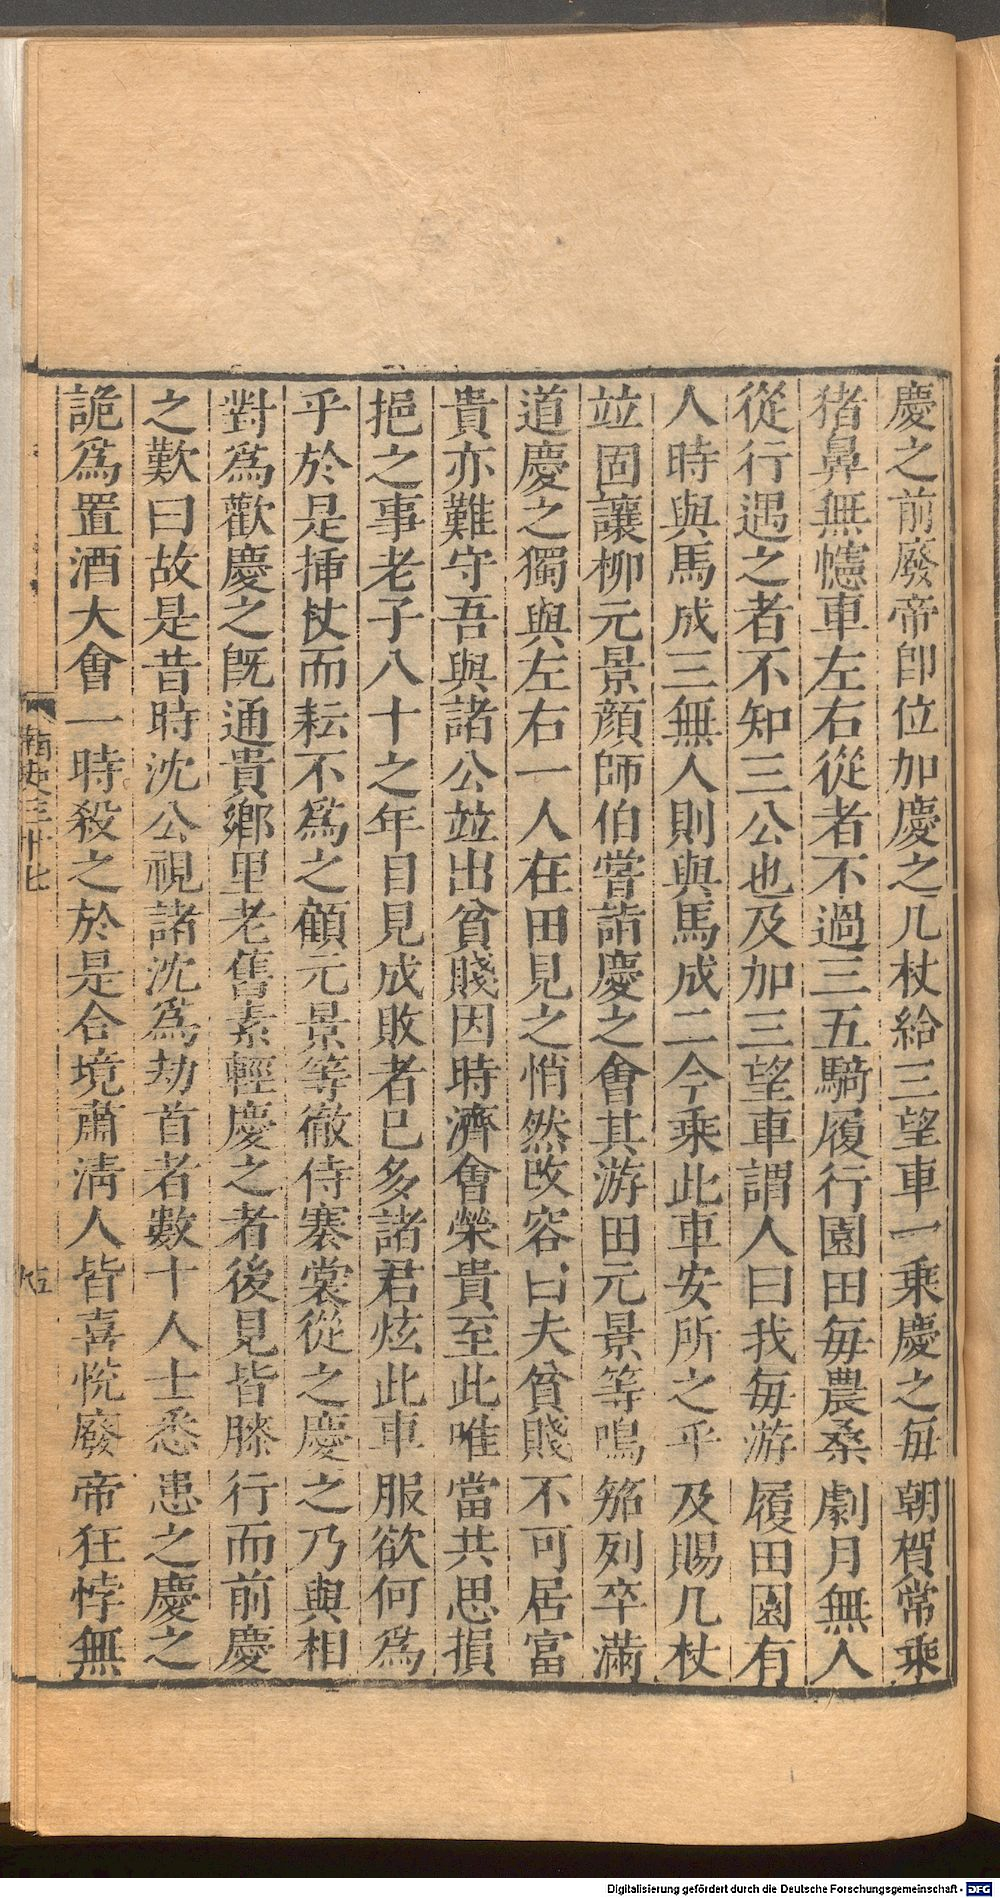 慶之前廢帝卽位加慶之几杖給三望車一乘慶之每朝賀常乘
猪鼻無幰車左右從者不過三五騎履行園田每農桑劇月無人
從行遇之者不知三公也及加三望車謂人曰我每游履田園有
人時與馬成三無人則與馬成二今乘此車安所之乎及賜几杖
並固讓柳元景顏師伯嘗詣慶之會其游田元景等鳴笳列卒滿
道慶之獨與左右一人在田見之悄然改容曰夫貧賤不可居富
貴亦難守吾與諸公並出貧賤因時濟會榮貴至此唯當共思損
挹之事老子八十之年目見成敗者已多諸君炫此車服欲何爲
乎於是揷杖而耘不爲之顧元景等徹侍褰裳從之慶之乃與相
對爲歡慶之旣通貴鄉里老舊素輕慶之者後見皆膝行而前慶
之歎曰故是昔時沈公視諸沈爲劫首者數十人士悉患之慶之
詭爲置酒大會一時殺之於是合境肅淸人皆喜悅廢帝狂悖無
南史三十七
五
Digitalisierung gefördert durch die Deutsche Forschungsgemeinschaft - DFG